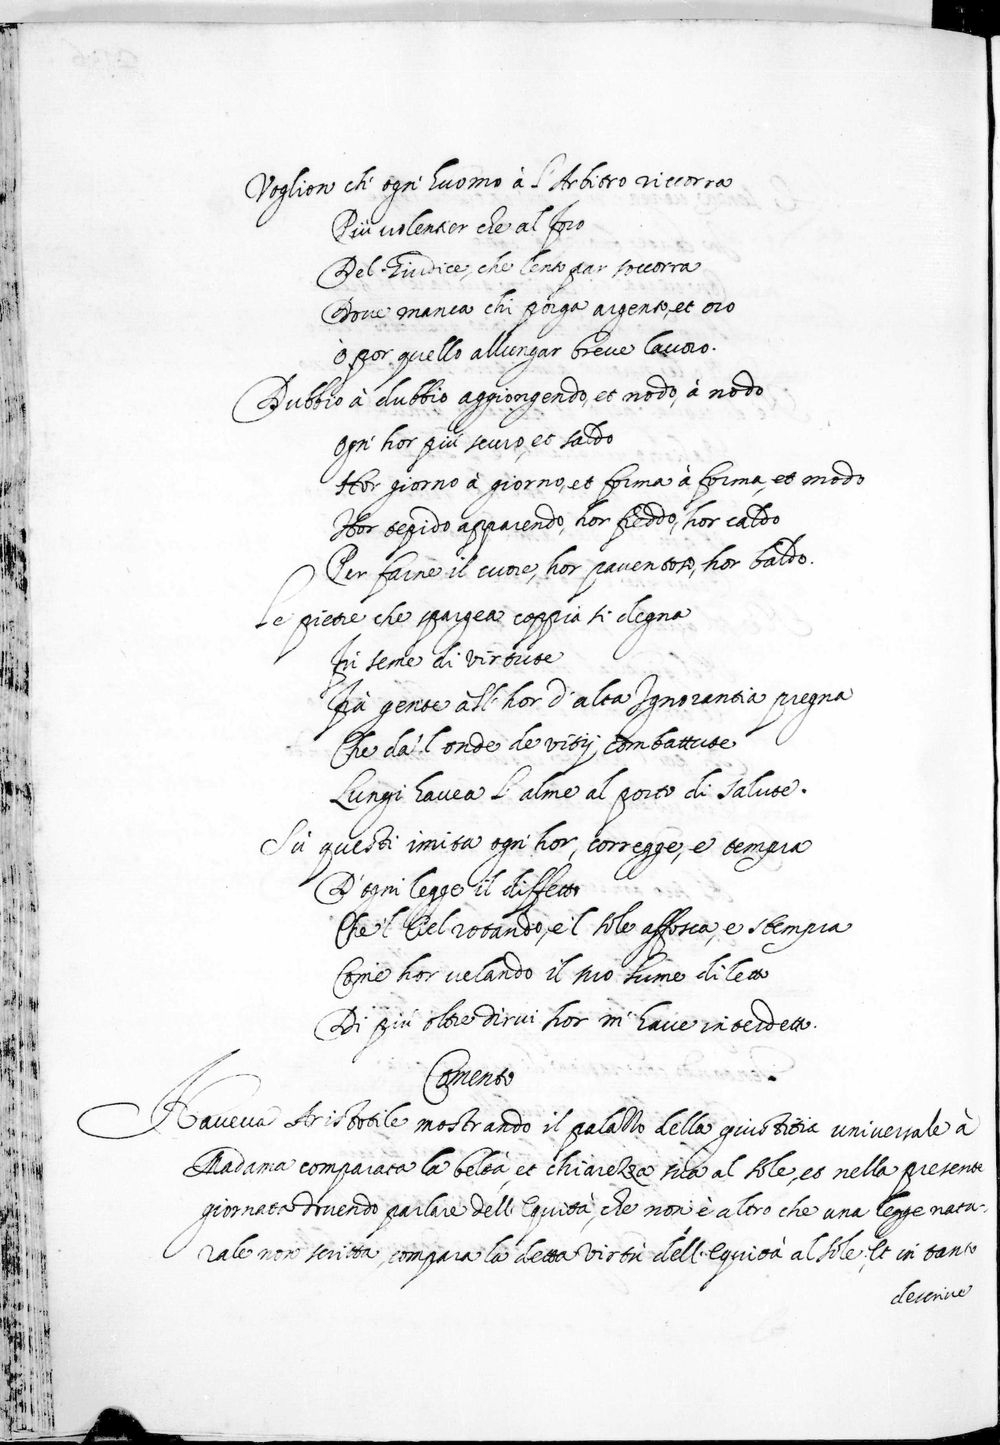 Voglion ch' ogni huomo à l'Arbitro riccorra
Più volentier che al foro
Del Giudice, che lento par soccorra
Dove manca chi porga argento, et oro
ò por quello allungar breve lavoro.
Dubbio à dubbio aggiongendo, et nodo, à nodo
ogni hor più scuro, et saldo
Hor giorno à giorno, et forma à forma, et modo
Hor tepido apparendo, hor freddo, hor caldo
Per farne il cuore, hor pauentoso, hor baldo.
Le pietre che spargea coppia si degna
Fù seme di virtute
Frà gente all'hor d'alta Ignorantia pregna
Che da l'onde de vitij combattute
Lungi hauea l'alme al porto di salute.
Sù questi imita ogni hor, corregge, e tempra
D'ogni legge il diffetto
Che'l Ciel rotando, e'l sole affosca, e stempra
Come hor velando il suo lume diletto
Di più oltre dirui hor m'haue interdetto.
Comento
Haueua Aristotile mostrando il palazzo della giustitia universale à
Madama comparata la beltà, et chiarezza sua al sole, et nella presente
giornata douendo parlare dell'Equità, che non è altro che una legge natu-
rale non scritta, compara la detta virtù dell'Equità al sole. Et in tanto
descriue